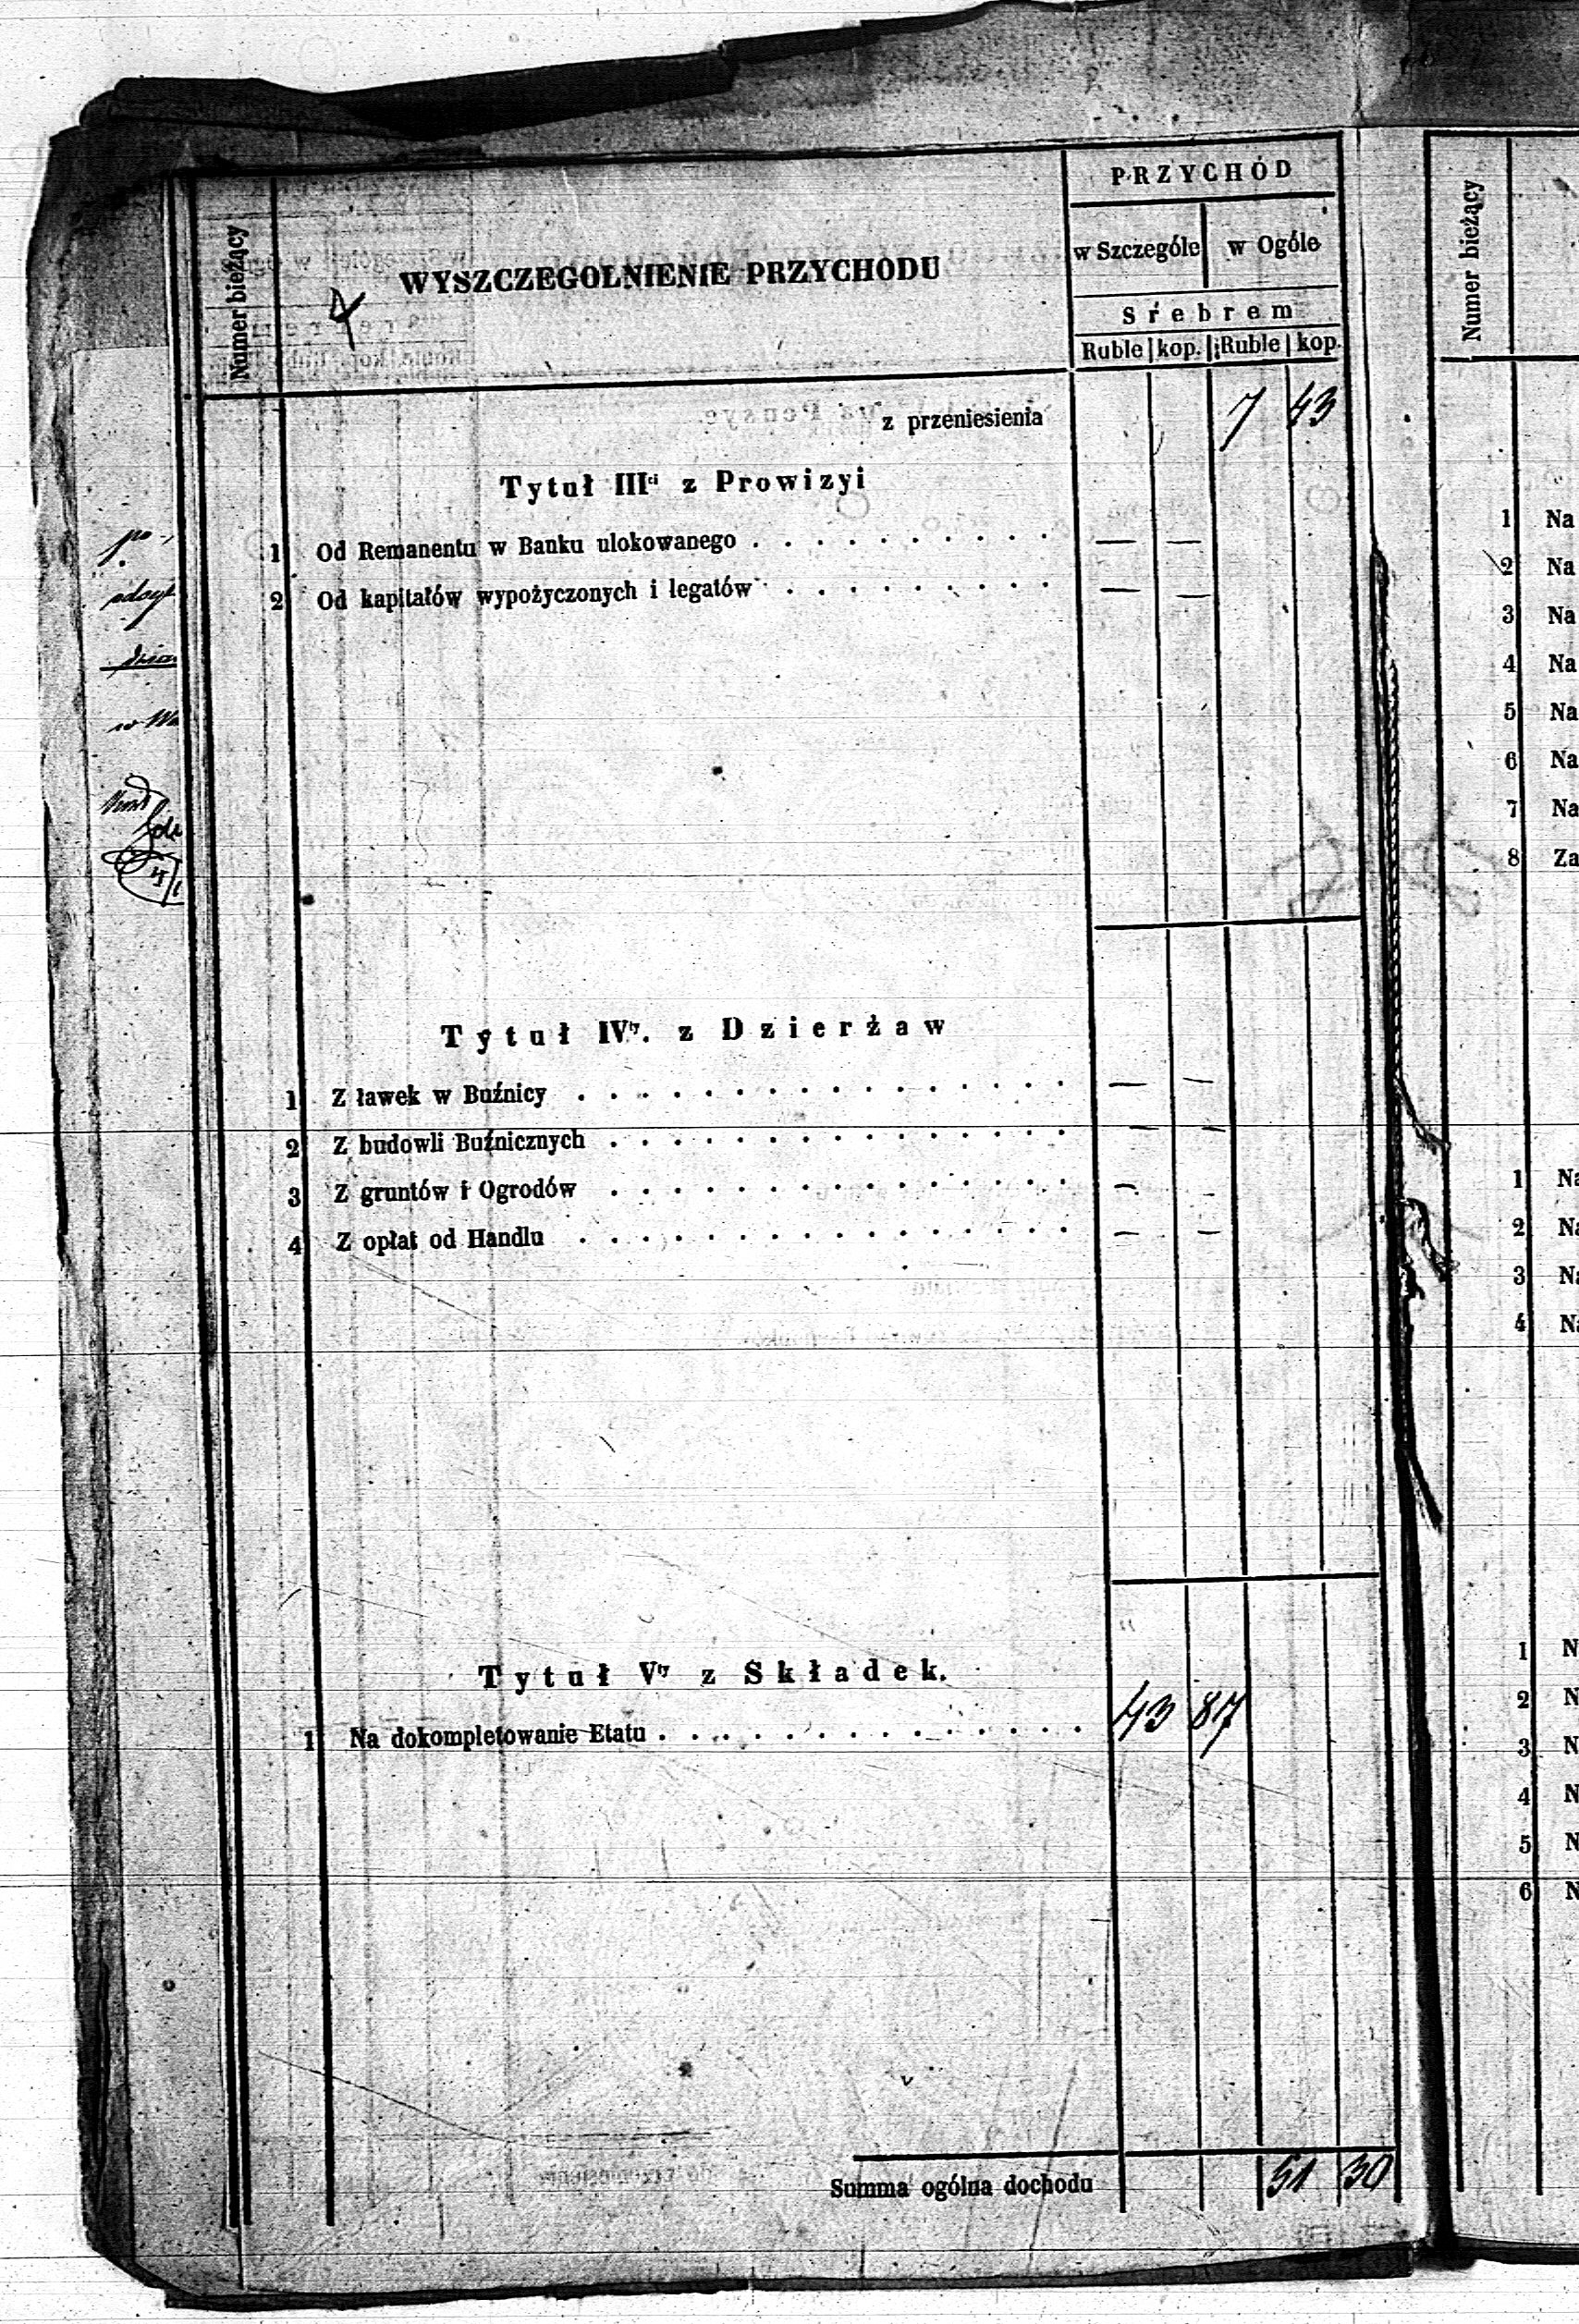 PRZYCHÓD
Numer bieżący
WYSZCZEGOLNIENIE PRZYCHODU
4
w Szczególe w Ogóle
Srebrem
Ruble kop. Ruble kop.
z przeniesienia 7 43
Tytuł IIIci z Prowizyi
1 Od Remanentu w Banku ulokowanego . . . . . . . . . . — —
2 Od kapitałów wypożyczonych i legatów . . . . . . . . . — —
Tytuł IVty. z Dzierżaw
1 Z ławek w Buźnicy . . . . . . . . . . . . . . . . — —
2 Z budowli Buźnicznych . . . . . . . . . . . . . . . — —
3 Z gruntów i Ogrodów . . . . . . . . . . . . . . . — —
4 Z opłat od Handlu . . . . . . . . . . . . . . . . — —
Tytuł Vty z Składek.
1 Na dokompletowanie Etatu . . . . . . . . . . . . . . 43 87
Summa ogólna dochodu 51 30
Numer bieżący
1 Na
2 Na
3 Na
4 Na
5 Na
6 Na
7 Na
8 Za
1 Na
2 Na
3 Na
4 Na
1 N
2 N
3 N
4 N
5 N
6 N